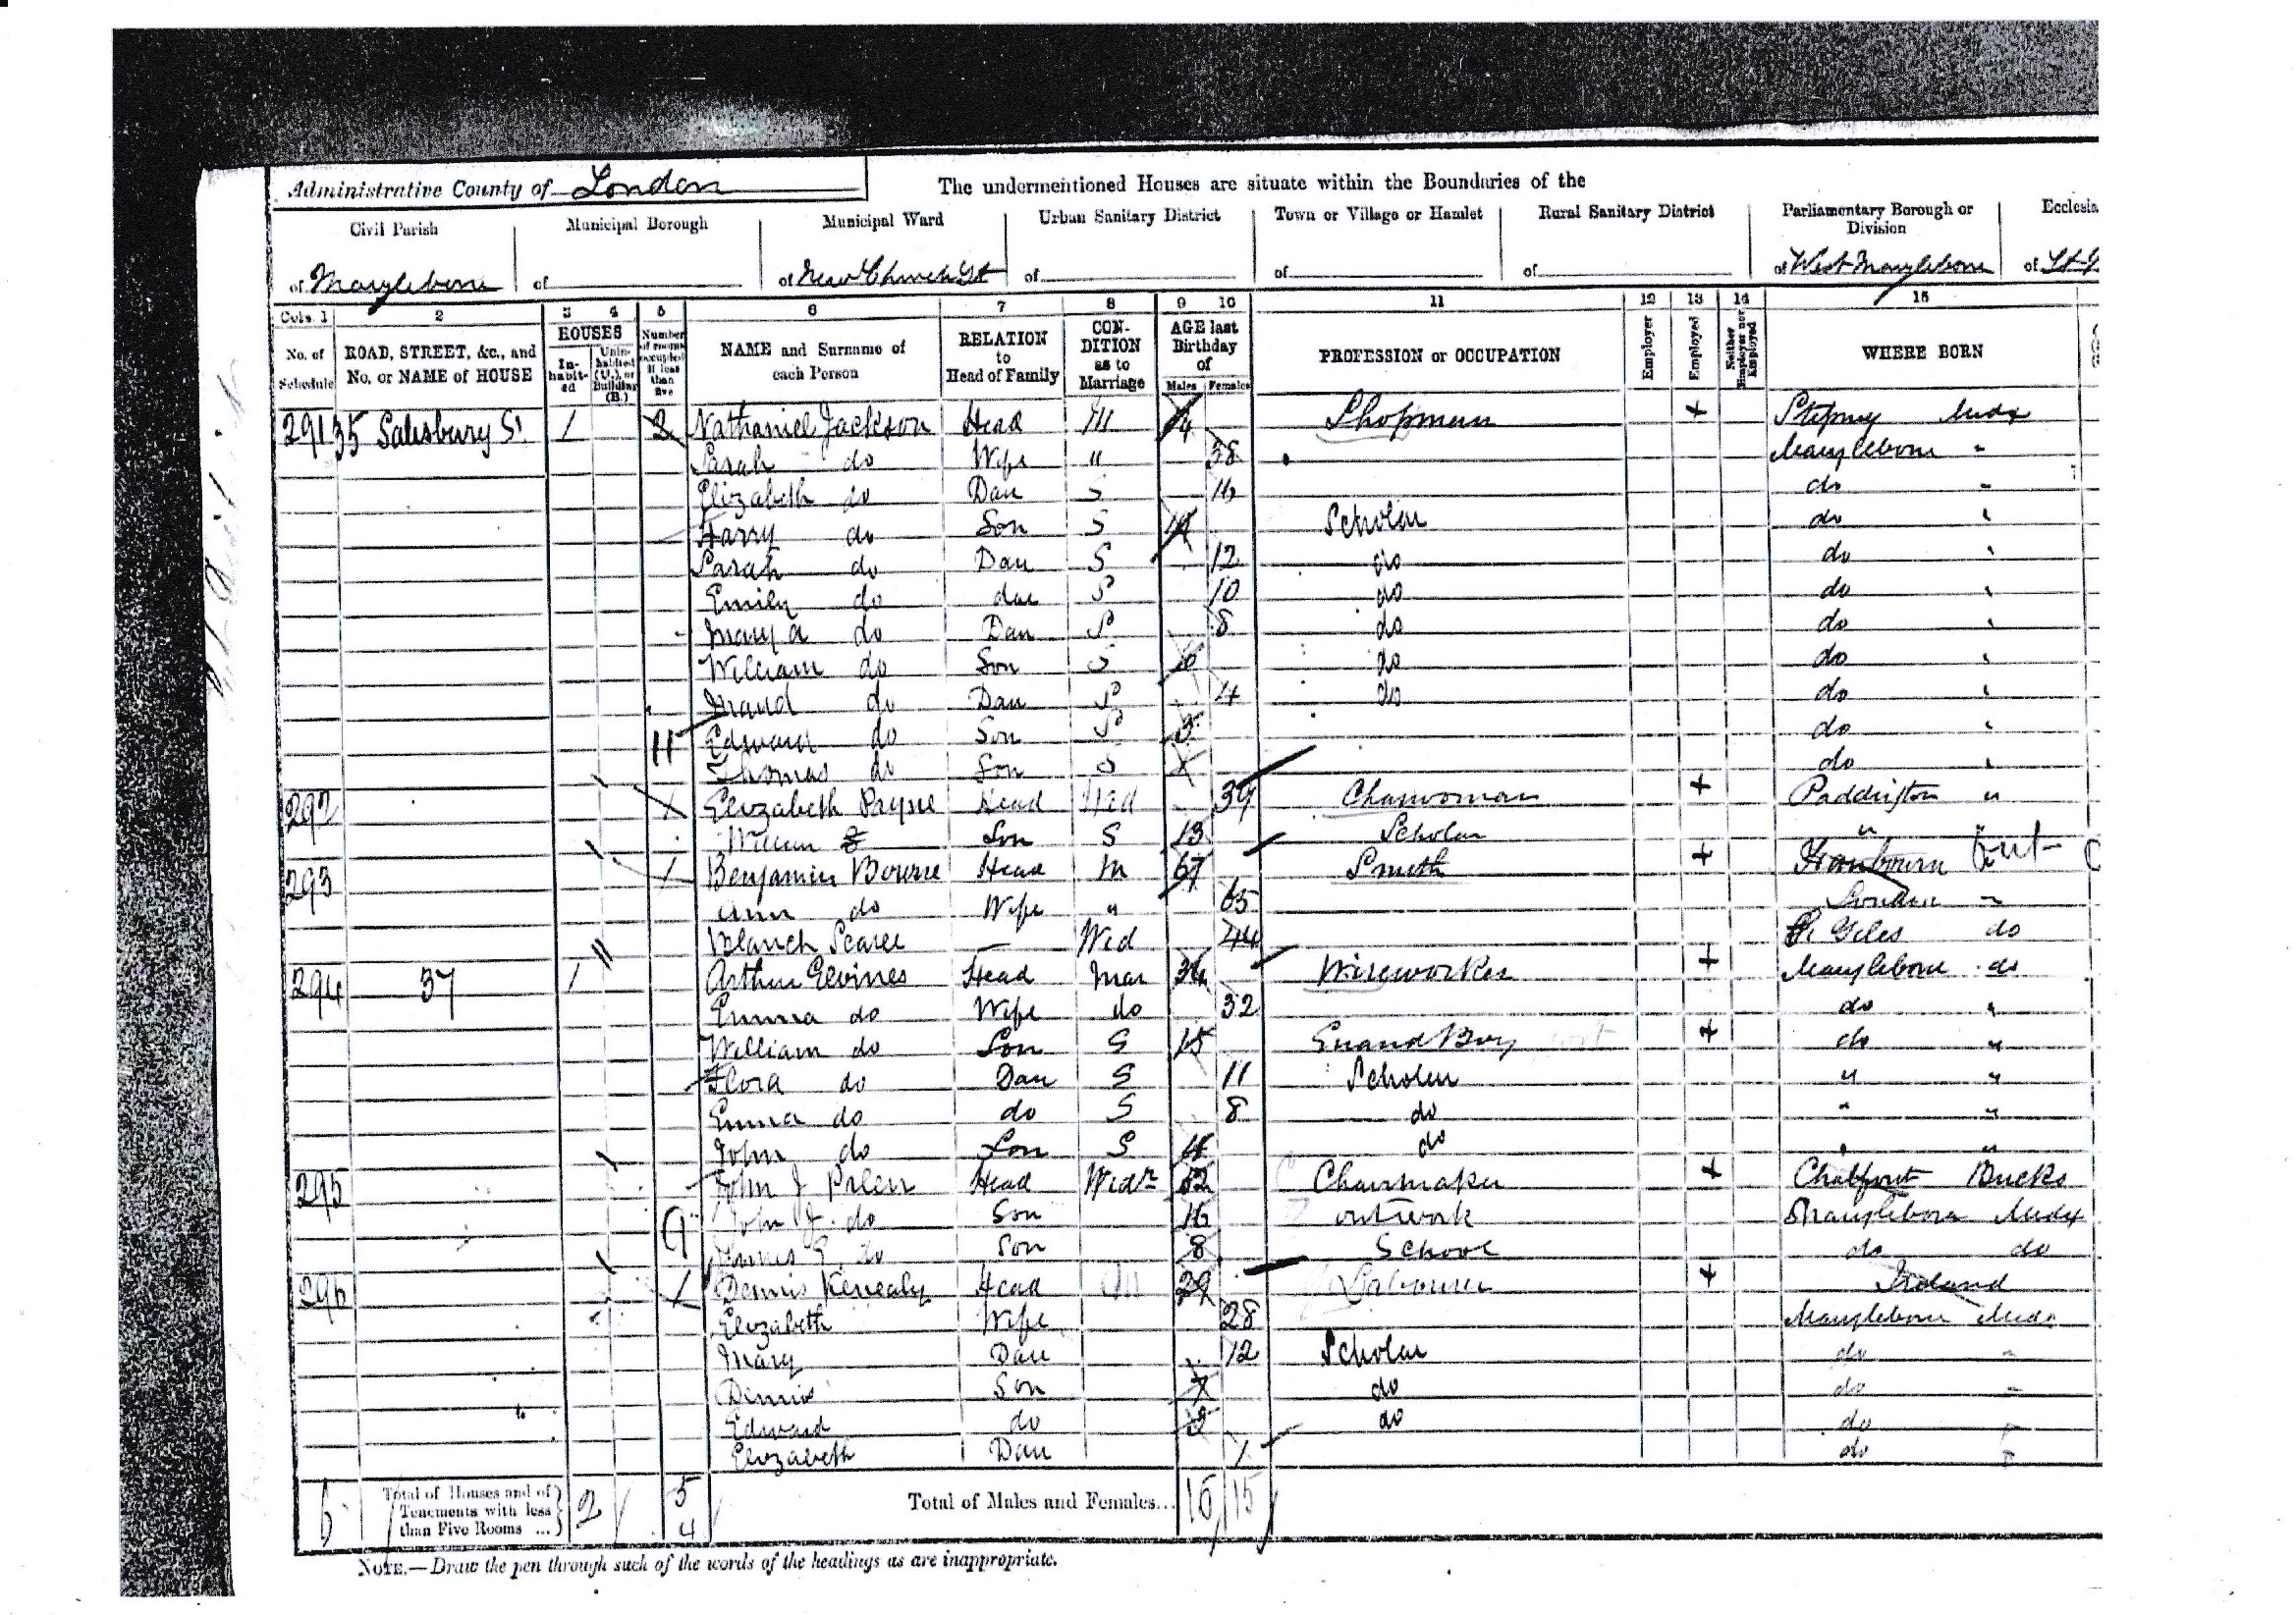 Administrative County of London
The undermentioned Houses are situate within the Boundaries of the
Civil Parish Municipal Borough Municipal Ward Urban Sanitary District Town or Village or Hamlet Rural Sanitary District Parliamentary Borough or Division Ecclesia
of Marylebone of of New Church St of of of of West Marylebone of St
Cols. 1 2 3 4 5 6 7 8 9 10 11 12 13 14 15
No. of Schedule ROAD, STREET, &c., and No. or NAME of HOUSE HOUSES Inhabited Uninhabited (U.), or Building (B.) Number of rooms occupied if less than five NAME and Surname of each Person RELATION to Head of Family CONDITION as to Marriage AGE last Birthday of Males Females PROFESSION or OCCUPATION Employer Employed Neither Employer nor Employed WHERE BORN
291 35 Salisbury St 1 2 Nathaniel Jackson Head M Shopman + Stepney Midx
Sarah do Wife " 38 Marylebone "
Elizabeth do Dau S 16 do "
Harry do Son S 14 Scholar do "
Sarah do Dau S 12 do do "
Emily do dau S 10 do do "
Mary A do Dau S 8 do do "
William do Son S do do "
Maud do Dau S 4 do do "
11 Edward do Son S 3 do "
Thomas do Son S do "
292 1 Elizabeth Payne Head Wid 39 Charwoman + Paddington "
William Son S 13 Scholar " "
293 1 Benjamin Bourne Head M 67 Smith +
Ann do Wife " 65 London "
Blanch Wid 44 St Giles do
294 37 1 Arthur Head Mar 34 Wireworker + Marylebone do
Emma do Wife do 32 do "
William do Son S 15 Errand Boy + do "
Flora do Dau S 11 Scholar " "
Emma do do S 8 do " "
John do Son S 4 do " "
295 John J Head Widr 52 Chairmaker + Chalfont Bucks
9 John J. do Son 16 out work Marylebone Midx
do Son 8 School do do
296 1 Dennis Kenealy Head M 29 Labourer + Ireland
Elizabeth Wife 28 Marylebone Midx
Mary Dau 12 Scholar do "
Dennis Son 7 do do "
Edward do 3 do do "
Elizabeth Dau 1 do "
6 Total of Houses and of Tenements with less than Five Rooms ... 2 5 4 Total of Males and Females... 16 15
NOTE.—Draw the pen through such of the words of the headings as are inappropriate.